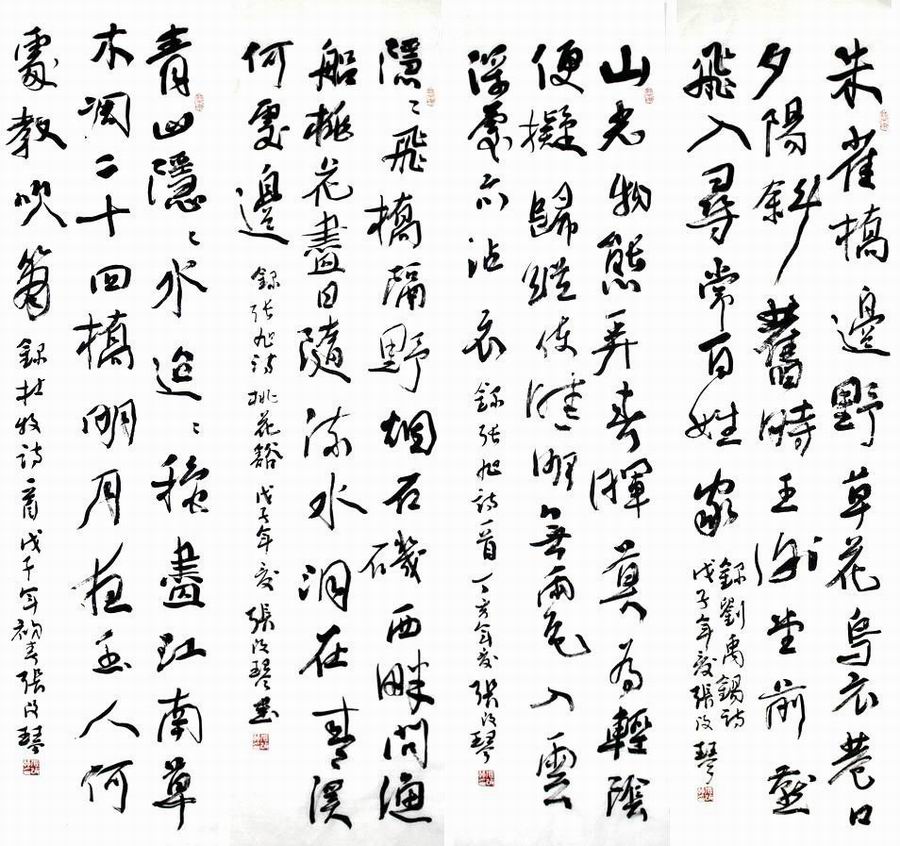 朱雀橋邊野草花烏衣巷口
夕陽斜舊時王谢堂前燕
飛入尋常百姓家
錄劉禹錫詩
戊子年夏張改琴
山光物態弄春暉莫为輕陰
便擬歸縱使晴明無雨色入雲
深處亦沾衣 錄張旭詩一首 丁亥年夏 張改琴
隱〻飛橋隔野烟石磯西畔問漁
船桃花盡日隨流水洞在青溪
何處邊 錄張旭詩桃花谿 戊子年夏 張改琴書
青山隱〻水迢〻秋盡江南草
木凋二十四橋明月夜玉人何
處教吹簫 錄杜牧詩一首戊子年初春張改琴